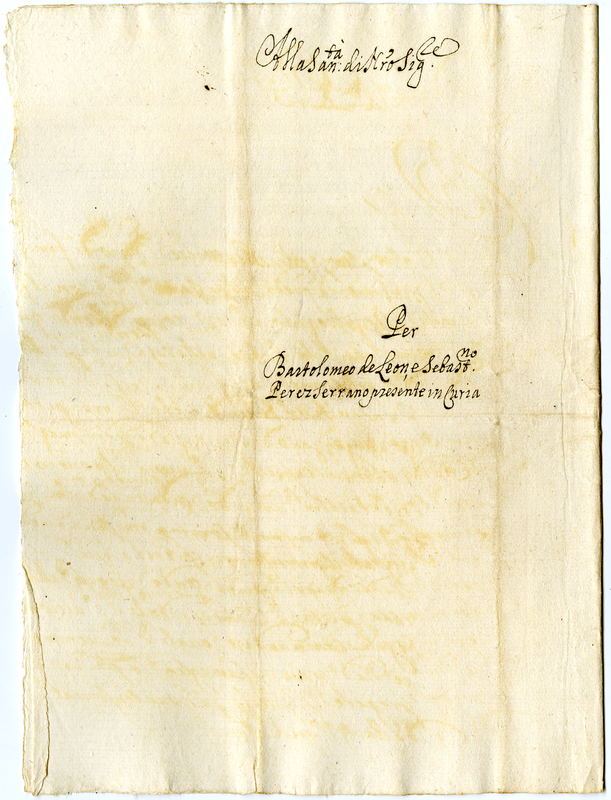 Alla San.tà di Nro Sig.re
Per
Bartolomeo de Leon, e Sebast.no
Perez Serrano presente in Curia